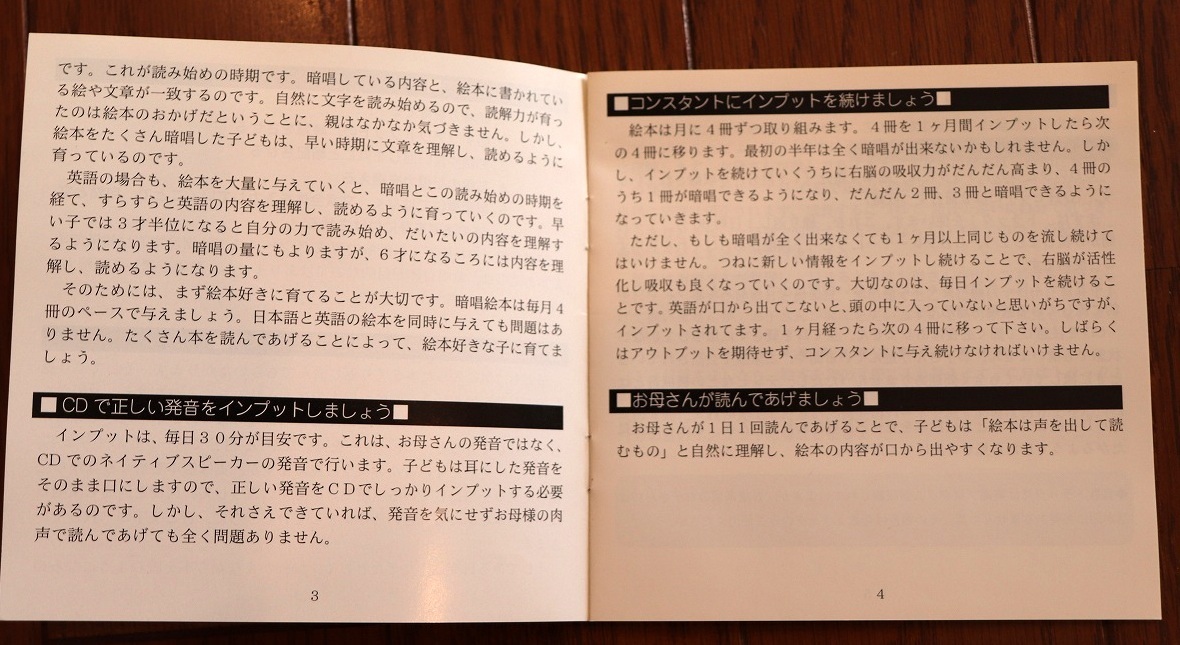 です。これが読み始めの時期です。暗唱している内容と、絵本に書かれてい
る絵や文章が一致するのです。自然に文字を読み始めるので、読解力が育っ
たのは絵本のおかげだということに、親はなかなか気づきません。しかし、
絵本をたくさん暗唱した子どもは、早い時期に文章を理解し、読めるように
育っているのです。
英語の場合も、絵本を大量に与えていくと、暗唱とこの読み始めの時期を
経て、すらすらと英語の内容を理解し、読めるように育っていくのです。早
い子では３才半位になると自分の力で読み始め、だいたいの内容を理解す
るようになります。暗唱の量にもよりますが、６才になるころには内容を理
解し、読めるようになります。
そのためには、まず絵本好きに育てることが大切です。暗唱絵本は毎月４
冊のペースで与えましょう。日本語と英語の絵本を同時に与えても問題はあ
りません。たくさん本を読んであげることによって、絵本好きな子に育てま
しょう。
■ CD で正しい発音をインプットしましょう■
インプットは、毎日３０分が目安です。これは、お母さんの発音ではなく、
CD でのネイティブスピーカーの発音で行います。子どもは耳にした発音を
そのまま口にしますので、正しい発音をＣＤでしっかりインプットする必要
があるのです。しかし、それさえできていれば、発音を気にせずお母様の肉
声で読んであげても全く問題ありません。
3
■コンスタントにインプットを続けましょう■
絵本は月に４冊ずつ取り組みます。４冊を１ヶ月間インプットしたら次
の４冊に移ります。最初の半年は全く暗唱が出来ないかもしれません。しか
し、インプットを続けていくうちに右脳の吸収力がだんだん高まり、４冊の
うち１冊が暗唱できるようになり、だんだん２冊、３冊と暗唱できるように
なっていきます。
ただし、もしも暗唱が全く出来なくても１ヶ月以上同じものを流し続けて
はいけません。つねに新しい情報をインプットし続けることで、右脳が活性
化し吸収も良くなっていくのです。大切なのは、毎日インプットを続けるこ
とです。英語が口から出てこないと、頭の中に入っていないと思いがちですが、
インプットされてます。１ヶ月経ったら次の４冊に移って下さい。しばらく
はアウトプットを期待せず、コンスタントに与え続けなければいけません。
■お母さんが読んであげましょう■
お母さんが１日１回読んであげることで、子どもは「絵本は声を出して読
むもの」と自然に理解し、絵本の内容が口から出やすくなります。
4